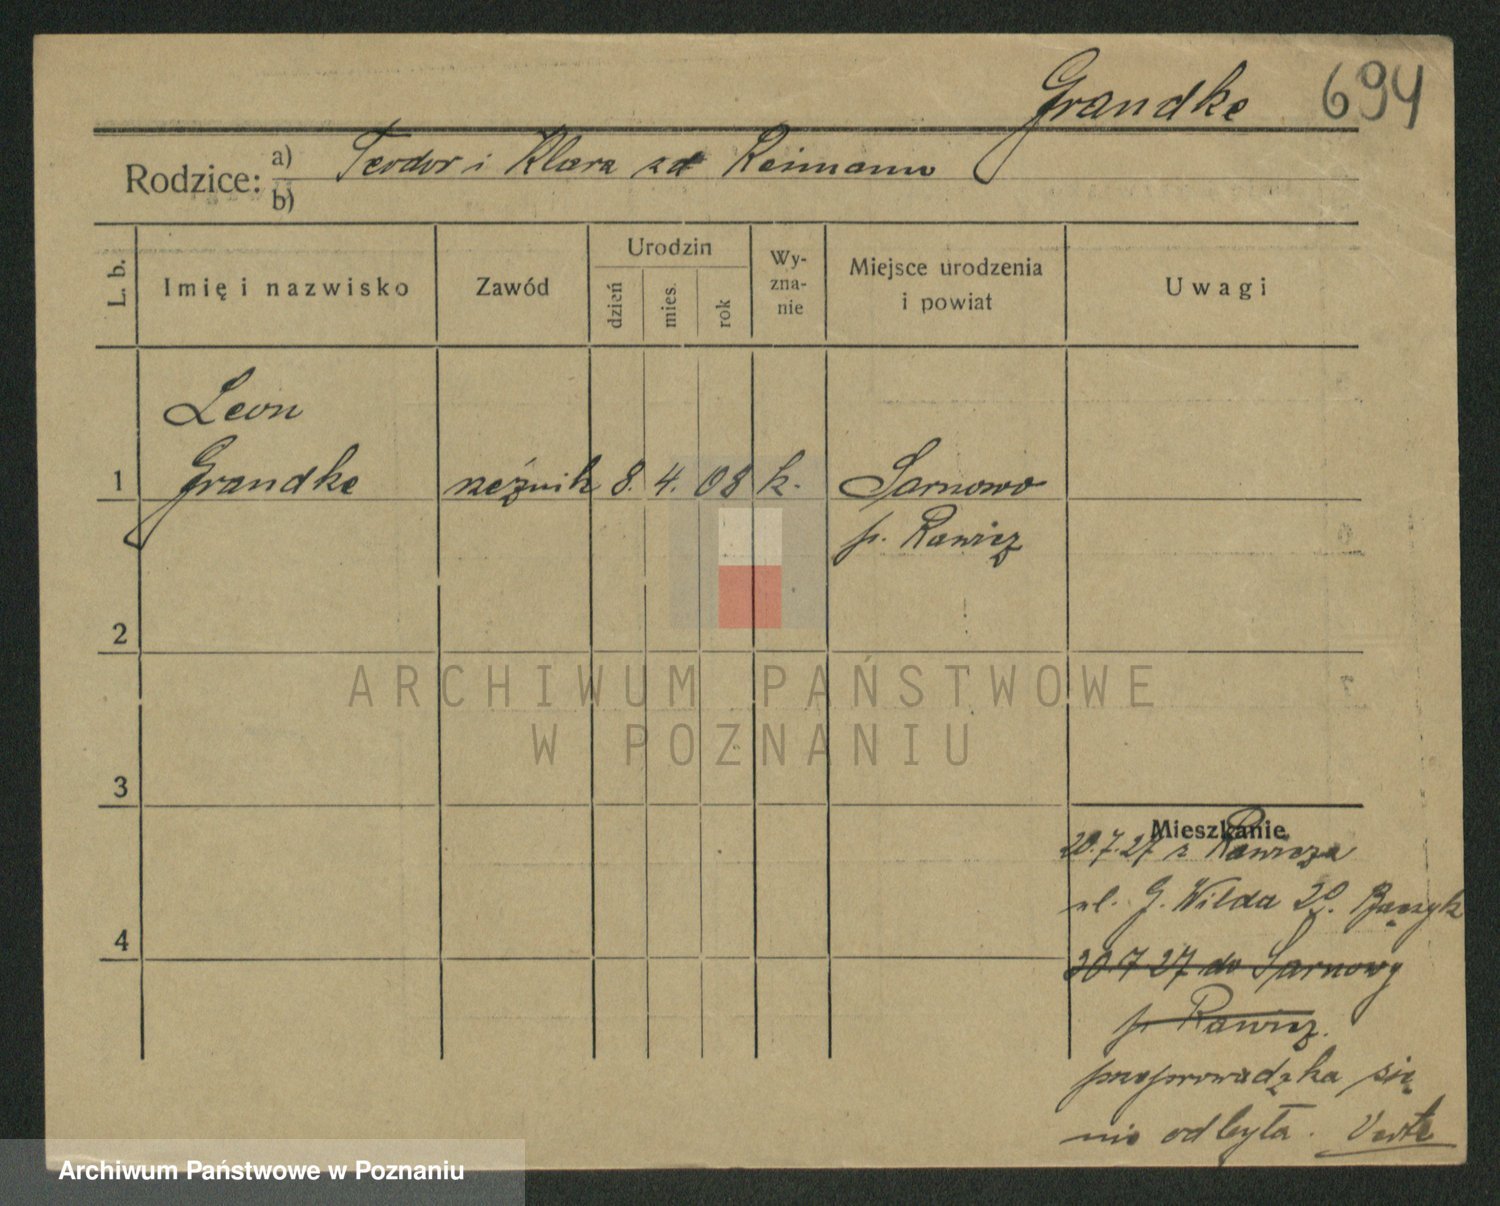 Grandke 694
Rodzice: a) Teodor i Klara zd Reimann
b)
L. b. Imię i nazwisko Zawód Urodzin dzień mies. rok Wy-zna-nie Miejsce urodzenia i powiat Uwagi
Leon
1 Grandke rzeźnik 8. 4. 08 k. Sarnowo
p. Rawicz
2
ARCHIWUM PAŃSTWOWE
W POZNANIU
3
Mieszkanie
20.7.27 z Rawicza
ul. G. Wilda 20.
4
30.7 27 do Sarnowy
p. Rawicz.
przeprowadzka się
nie odbyła. Verte
Archiwum Państwowe w Poznaniu